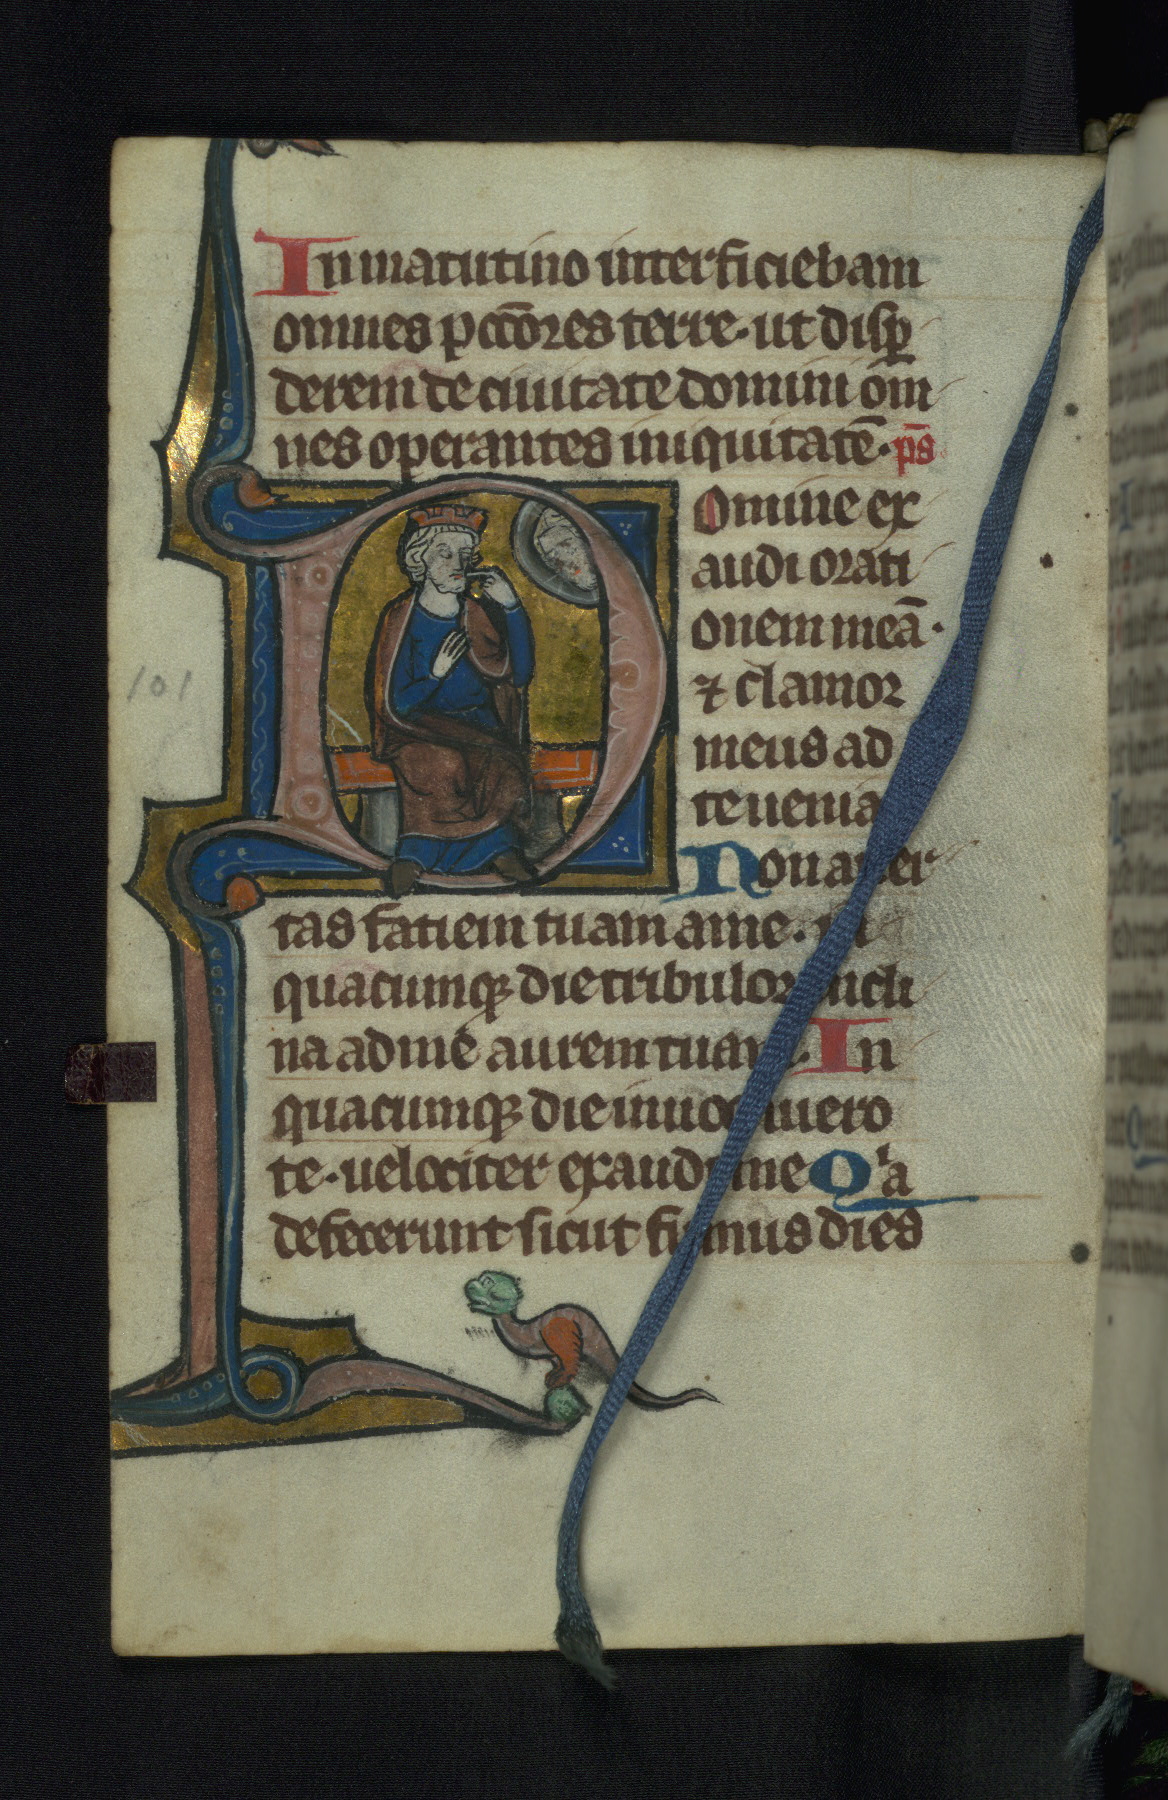 In matutino interficiebam
omnes pcc̄ores terre· ut disꝑ
derem de ciuitate domini om̄
nes operantes iniquitatē· ps̄
Domine ex
audi orati
onem meā·
⁊ clamor
meus ad
te uenia
Non auer
tas fatiem tuam a me· in
quacumqꝫ die tribulor incli
na ad me aurem tuam· In
quacumqꝫ die inuocauero
te· uelociter exaudi me Qͥa
defecerunt sicut fumus dies
101